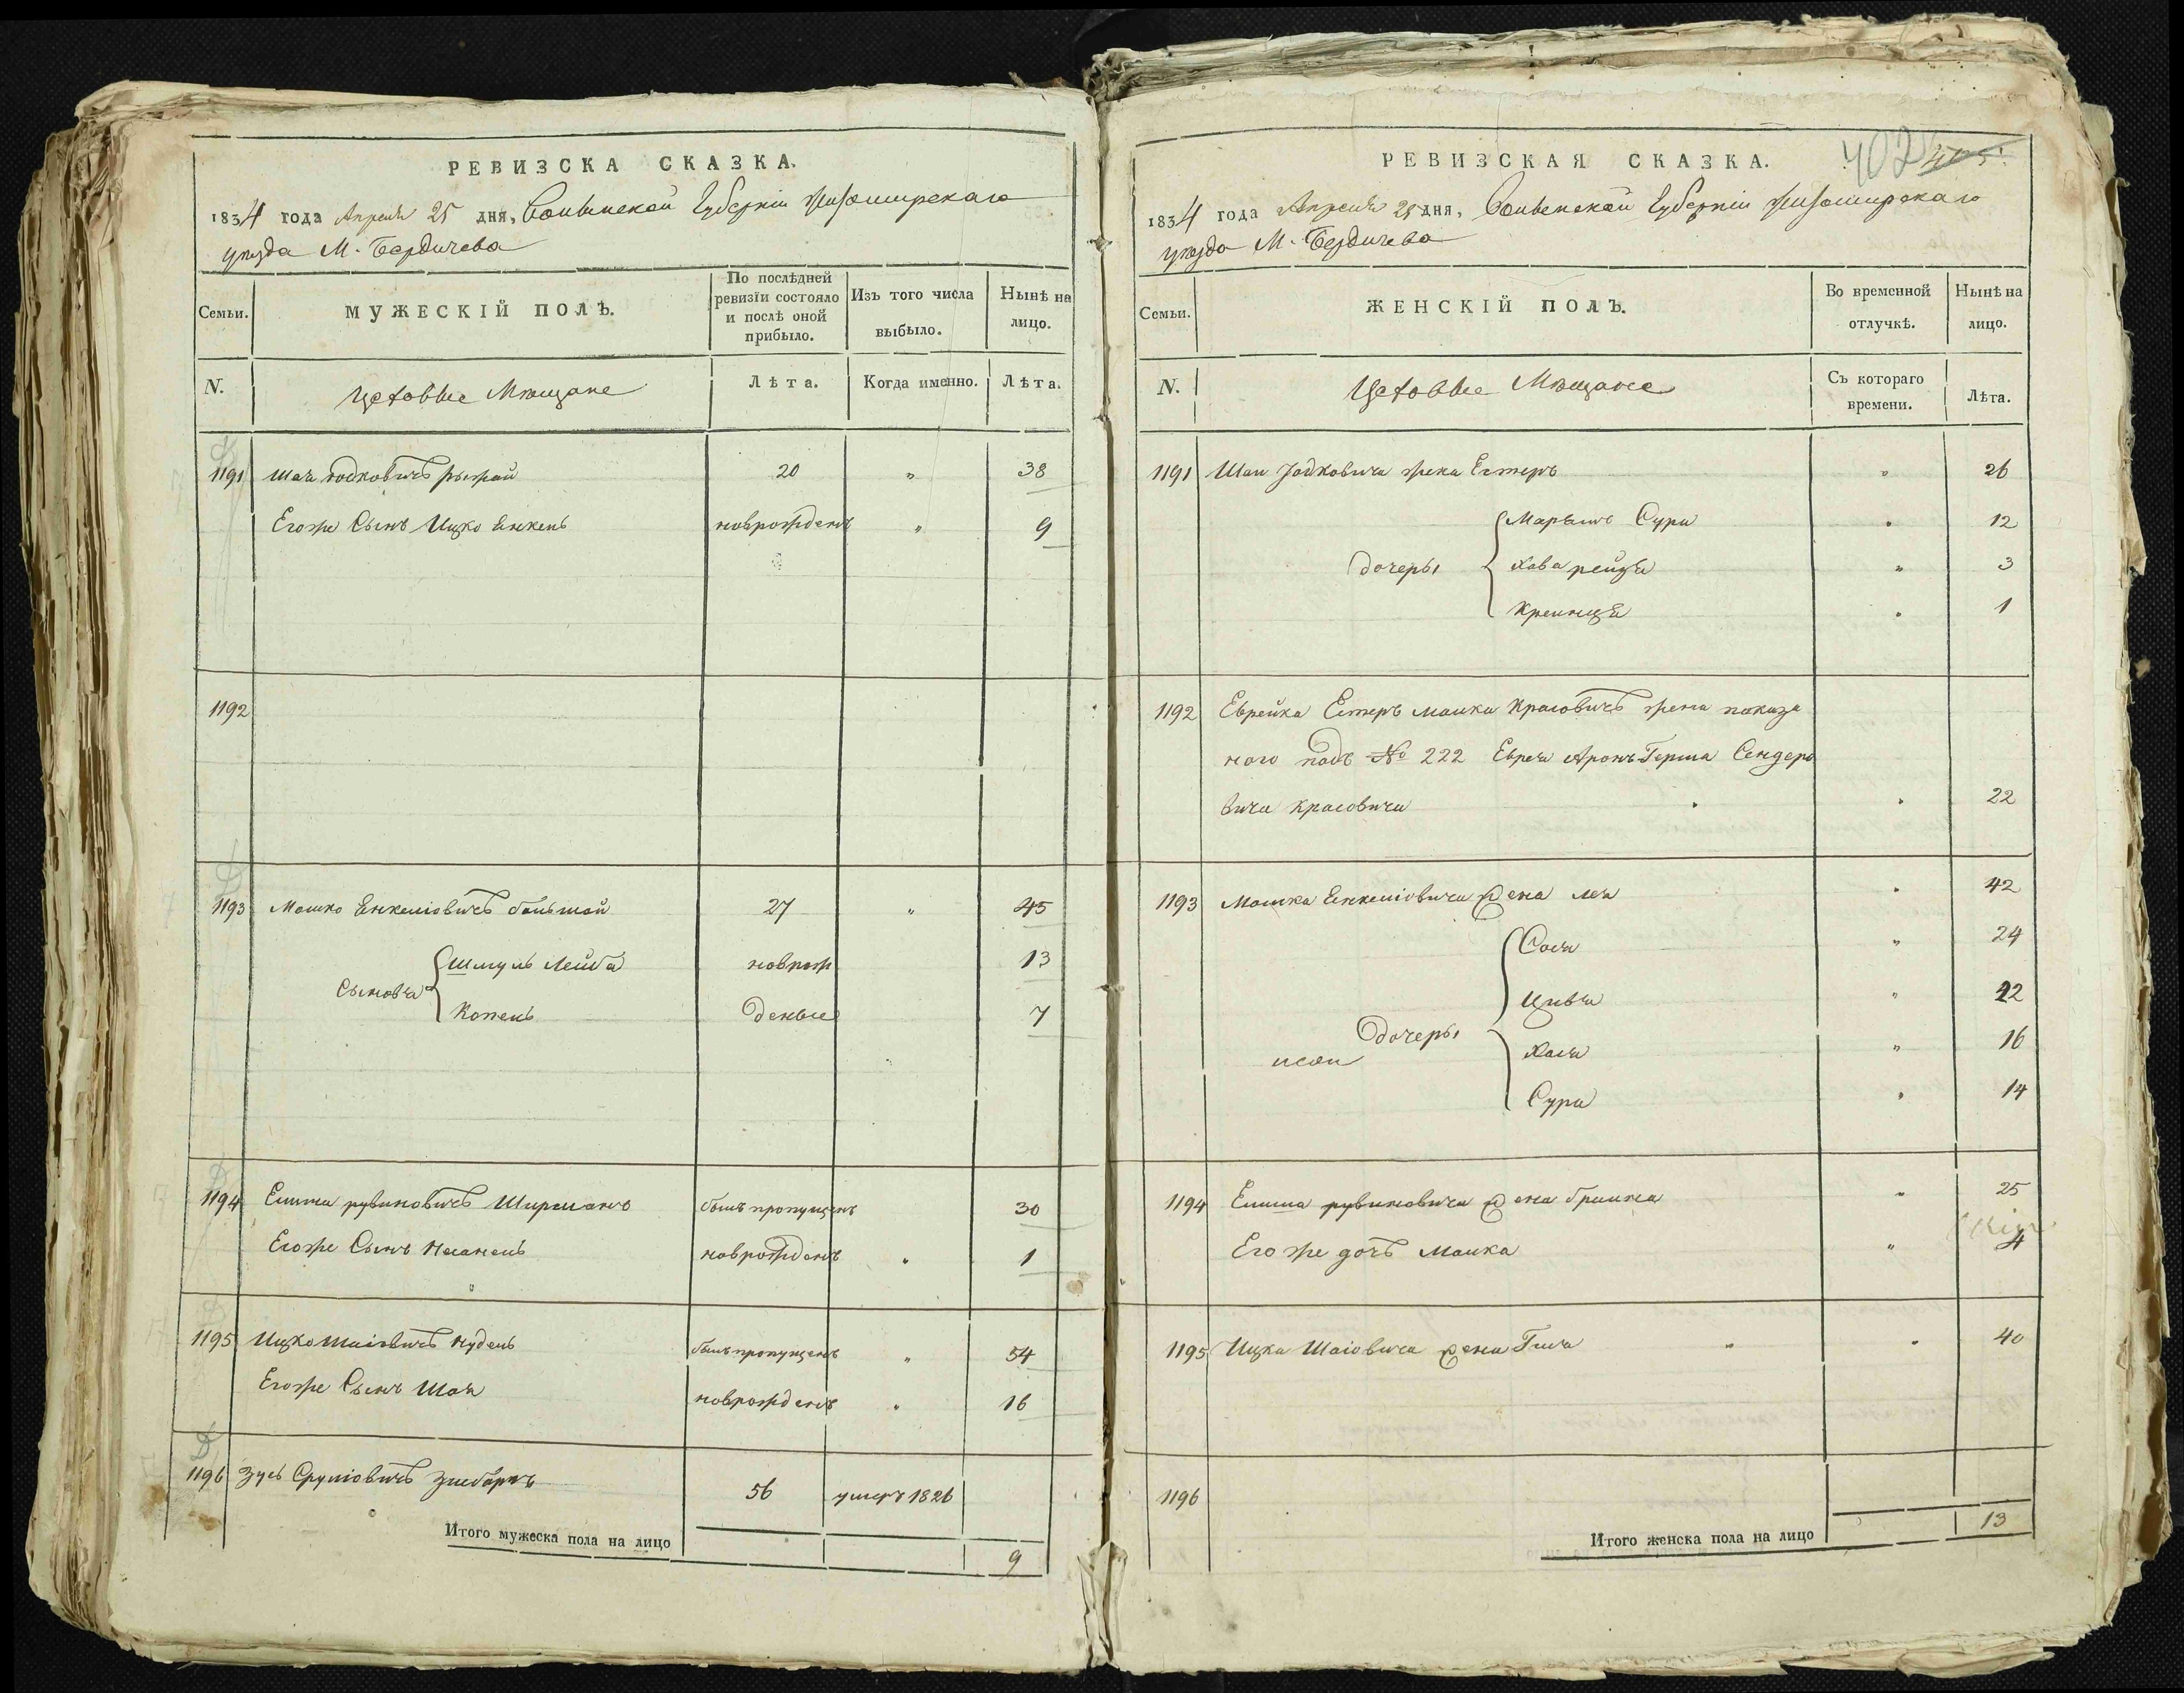 РЕВИЗСКА СКАЗКА.
1834 года Апреля 25 дня, Волынской Губерніи Житомирскаго
уезда М. Бердичева
Семьи.
МУЖЕСКІЙ ПОЛЪ.
По послѣдней ревизіи состояло и послѣ оной прибыло.
Изъ того числа выбыло.
Нынѣ на лицо.
N.
Цеховые Мещане
Лѣта.
Когда именно.
Лѣта.
1191 Шая Іодковичъ рыжой 20 " 38
Егоже Сынъ Ицко Енкель новрожденъ " 9
1192
1193 Мошко Енкеліовичъ большой 27 " 45
Сыновья { Шмуль Лейба новрож 13
Копель деные 7
1194 Елиша рувиновичъ Ширманъ былъ пропущенъ 30
Егоже Сынъ Несанель новрожденъ " 1
1195 Ицко Шаіовичъ Нудель былъ пропущенъ " 54
Егоже Сынъ Шая новрожденъ " 16
1196 Зусь Сруліовичъ 56 умеръ 1826
Итого мужеска пола на лицо 9
РЕВИЗСКАЯ СКАЗКА.
402
1834 года Апреля 25 дня, Волынской Губерніи Житомирскаго
уезда М. Бердичева
Семьи.
ЖЕНСКІЙ ПОЛЪ.
Во временной отлучкѣ.
Нынѣ на лицо.
N.
Цеховые Мещане
Съ котораго времени.
Лѣта.
1191 Шаи Іодковича жена Естеръ " 26
Марьямъ Сура " 12
дочеры { Хава рейзя " 3
Креинця " 1
1192 Еврейка Естеръ малка Красовичъ жена показа
ного подъ № 222 Еврея Аронъ Герша Сендеро
вича Красовича " 22
1193 Мошка Енкеліовича жена лея " 42
Сося " 24
Цивья " 22
дочеры { Хася " 16
Сура " 14
1194 Елиша рувиновича жена браина " 25
Его же дочъ Малка " 4
1195 Ицка Шаіовича жена Гися " 40
1196
Итого женска пола на лицо 13